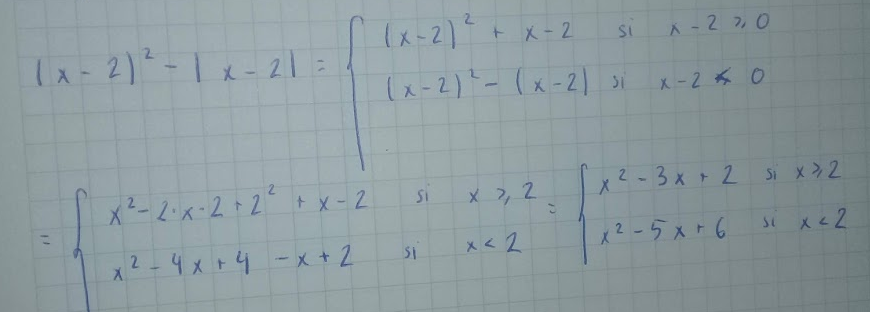 (x-2)² - |x-2| = { (x-2)² + x-2 si x-2 ≥ 0
(x-2)² - (x-2) si x-2 < 0
= { x² - 2·x·2 + 2² + x - 2 si x ≥ 2 = { x² - 3x + 2 si x ≥ 2
x² - 4x + 4 - x + 2 si x < 2 x² - 5x + 6 si x < 2